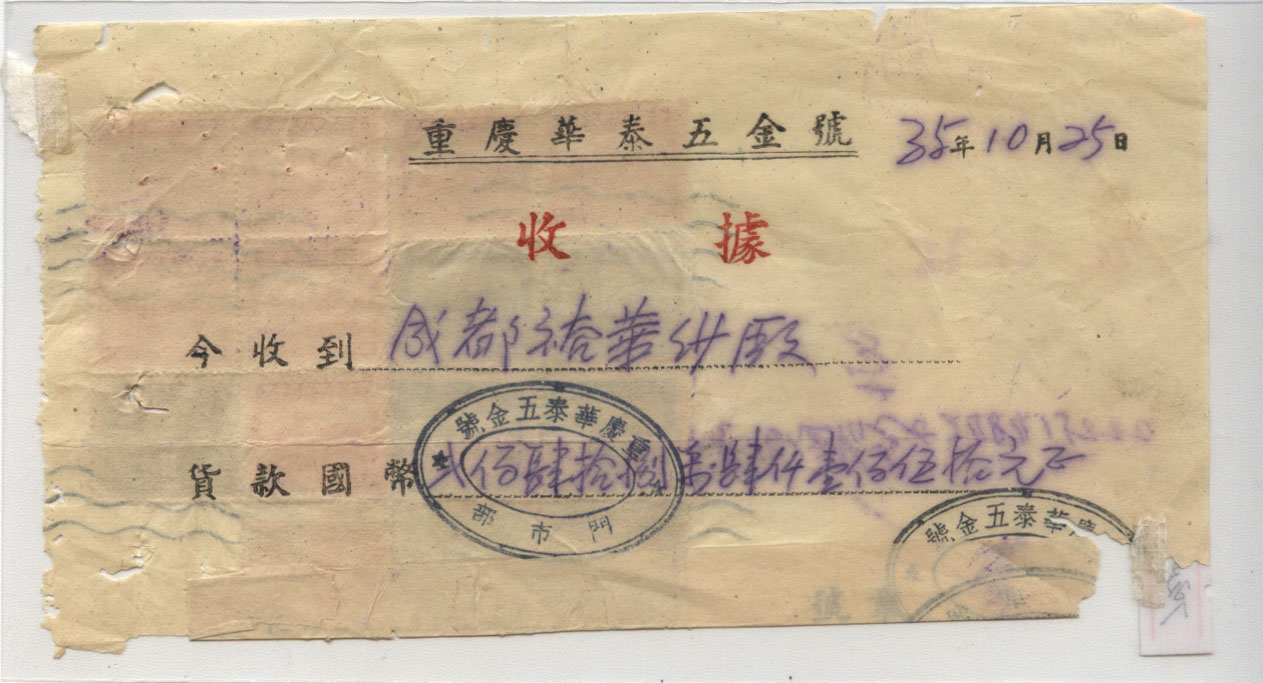 重慶華泰五金號 35年10月25日
收據
今收到 成都裕華紗廠
貨款國幣 弍佰肆拾捌萬肆仟壹佰伍拾元正
重慶華泰五金號
門市部
慶華泰五金號
號